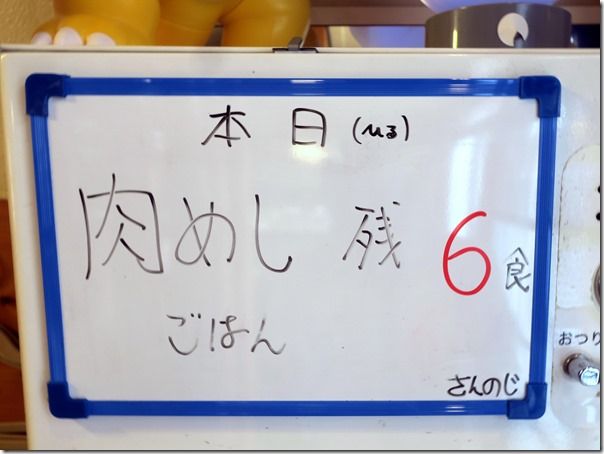 本日(ひる)
肉めし 残 6食
ごはん
おつり
さんのじ